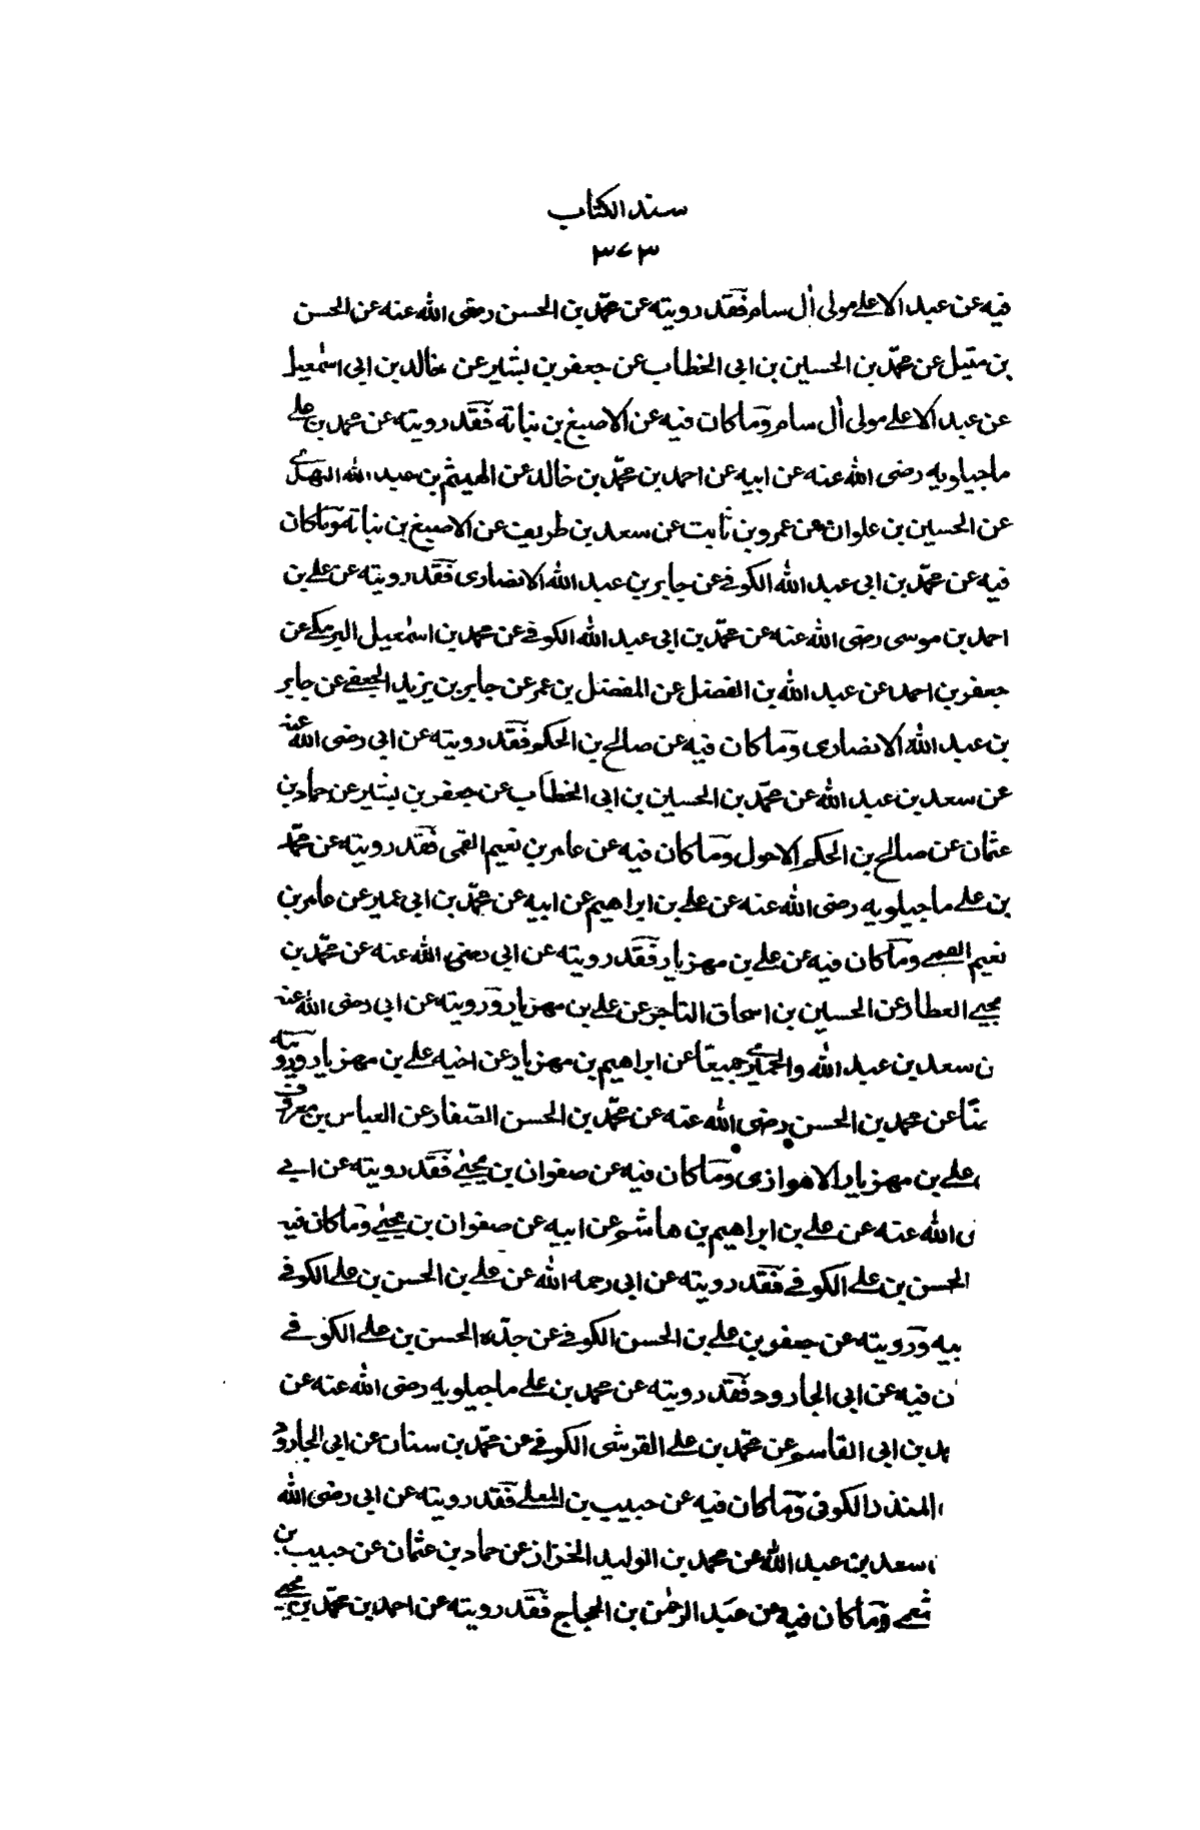 سند الكتاب
٣٧٣
فيه عن عبد الاعلى مولى اٰل سام فقد رويته عن محمّد بن الحسن رضى الله عنه عن الحسن
بن متيل عن محمّد بن الحسين بن ابى الخطاب عن جعفر بن بشير عن خالد بن ابى اسمٰعيل
عن عبد الاعلى مولى اٰل سام وما كان فيه عن الاصبغ بن نباتة فقد رويته عن محمد بن على
ماجيلويه رضى الله عنه عن ابيه عن احمد بن محمّد بن خالد عن الهيثم بن عبد الله النهدى
عن الحسين بن علوان عن عمرو بن ثابت عن سعد بن طريف عن الاصبغ بن نباتة وما كان
فيه عن محمّد بن ابى عبد الله الكوفى عن جابر بن عبد الله الانصارى فقد رويته عن على بن
احمد بن موسى رضى الله عنه عن محمّد بن ابى عبد الله الكوفى عن محمد بن اسمٰعيل البرمكى عن
جعفر بن احمد عن عبد الله بن الفضل عن المفضل بن عمر عن جابر بن يزيد الجعفى عن جابر
بن عبد الله الانصارى وما كان فيه عن صالح بن الحكم فقد رويته عن ابى رضى الله عنه
عن سعد بن عبد الله عن محمّد بن الحسين بن ابى الخطاب عن جعفر بن بشير عن حماد بن
عثمان عن صالح بن الحكم الاحول وما كان فيه عن عامر بن نعيم القمى فقد رويته عن محمّد
بن على ماجيلويه رضى الله عنه عن على بن ابراهيم عن ابيه عن محمّد بن ابى عمير عن عامر بن
نعيم القمى وما كان فيه عن على بن مهزيار فقد رويته عن ابى رضى الله عنه عن محمّد بن
يحيى العطار عن الحسين بن اسحاق التاجر عن على بن مهزيار ورويته عن ابى رضى الله عنه
ن سعد بن عبد الله والحميرى جميعًا عن ابراهيم بن مهزيار عن اخيه على بن مهزيار ورويته
ضًا عن محمد بن الحسن رضى الله عنه عن محمّد بن الحسن الصّفار عن العباس بن معروف
على بن مهزيار الاهوازى وما كان فيه عن صفوان بن يحيى فقد رويته عن ابى
ى الله عنه عن على بن ابراهيم بن هاشم عن ابيه عن صفوان بن يحيى وما كان فيه
الحسن بن على الكوفى فقد رويته عن ابى رحمه الله عن على بن الحسن بن على الكوفى
بيه ورويته عن جعفر بن على بن الحسن الكوفى عن جدّه الحسن بن على الكوفى
ن فيه عن ابى الجارود فقد رويته عن محمد بن على ماجيلويه رضى الله عنه عن
مد بن ابى القاسم عن محمّد بن على القرشى الكوفى عن محمّد بن سنان عن ابى الجارود
المنذر الكوفى وما كان فيه عن حبيب بن المعلى فقد رويته عن ابى رضى الله
سعد بن عبد الله عن محمد بن الوليد الخزاز عن حماد بن عثمان عن حبيب بن
ثعمى وما كان فيه عن عبد الرحمٰن بن الحجاج فقد رويته عن احمد بن محمّد بن يحيى